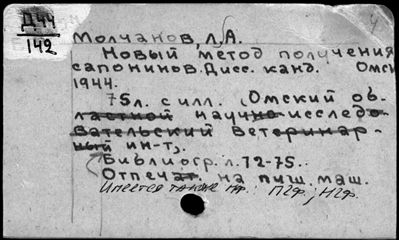 Д44
142
Молчанов, Л.А.
Новый метод получения
сапонинов. Дисс. канд. Омск
1944.
75л. с илл. (Омский об-
ластной научно-исследо-
вательский Ветеринар-
ный ин-т).
Библиогр. л. 72-75.
Отпечат. на пиш. маш.
Имеется также